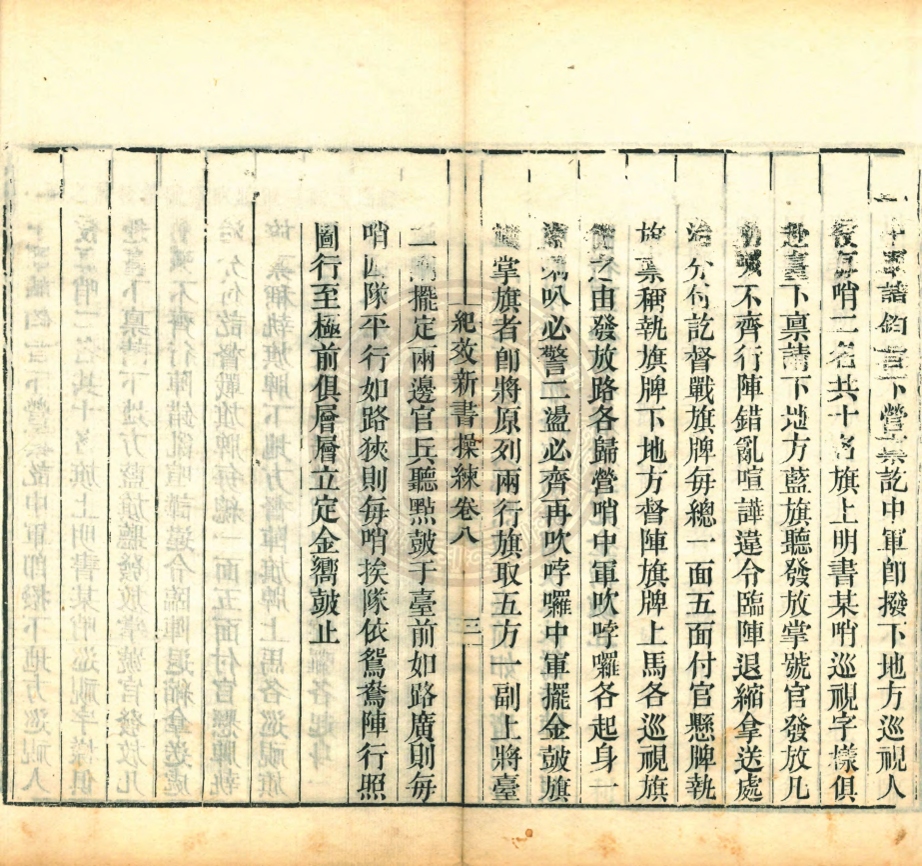 諸鈞旨下營禀訖中軍卽撥下地方巡視人
役每哨二名共十名旗上明書某哨巡視字樣俱
赴臺下禀請下地方藍旗聽發放掌號官發放凡
不齊行陣錯亂喧譁違令臨陣退縮拿送處
治分付訖督戰旗牌每總一面五面付官懸牌執
旗禀稱執旗牌下地方督陣旗牌上馬各巡視旗
之由發放路各歸營哨中軍吹哱囉各起身一
喇叭必警二盪必齊再吹哱囉中軍擺金鼓旗
掌旗者卽將原列兩行旗取五方一副上將臺
紀效新書操練卷八 三
二擺定兩邊官兵聽點鼓于臺前如路廣則每
哨四隊平行如路狹則每哨挨隊依鴛鴦陣行照
圖行至極前俱層層立定金響鼓止